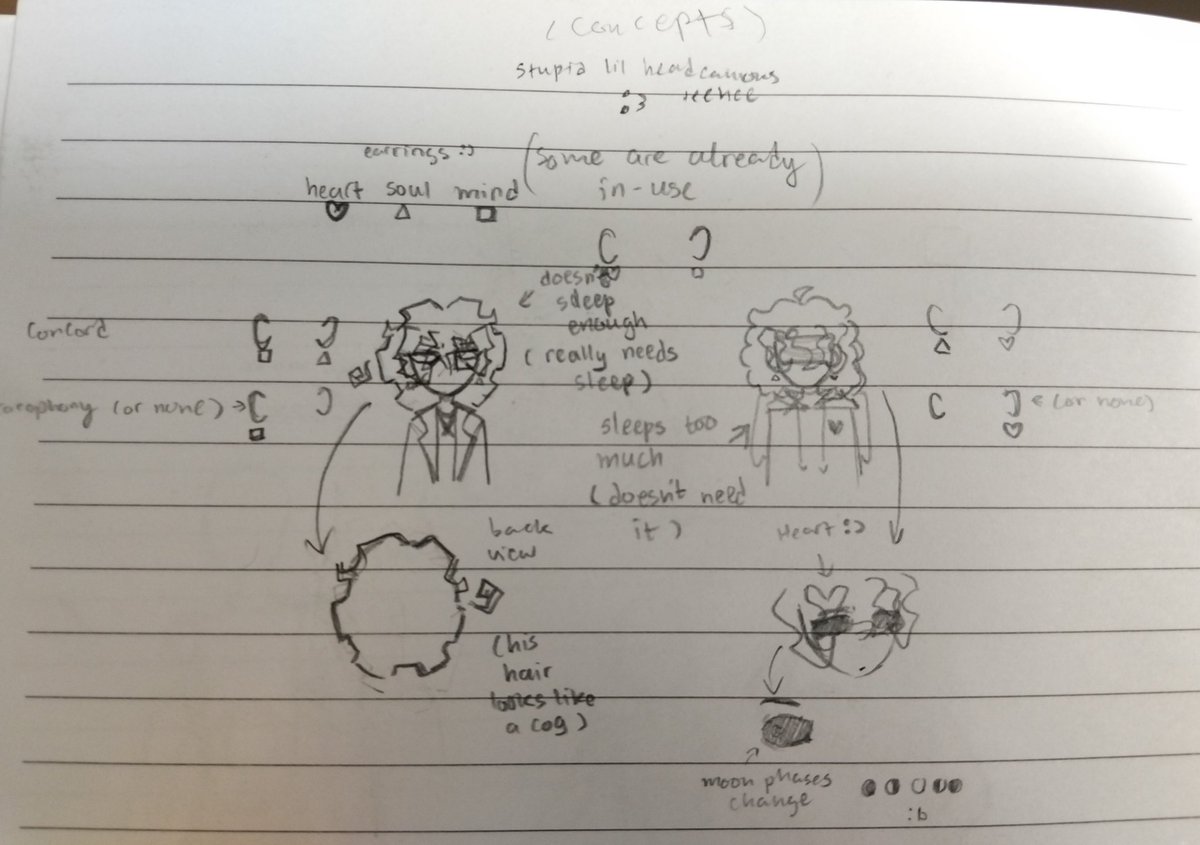 (concepts)
stupid lil headcanons
:3 teehee
earrings :)
(some are already
in-use)
heart soul mind
doesn't
sleep
enough
(really needs
sleep)
Concord
(or none)
(or none)
sleeps too
much
(doesn't need
it)
back
view
Heart :)
(his
hair
looks like
a cog)
moon phases
change
:b